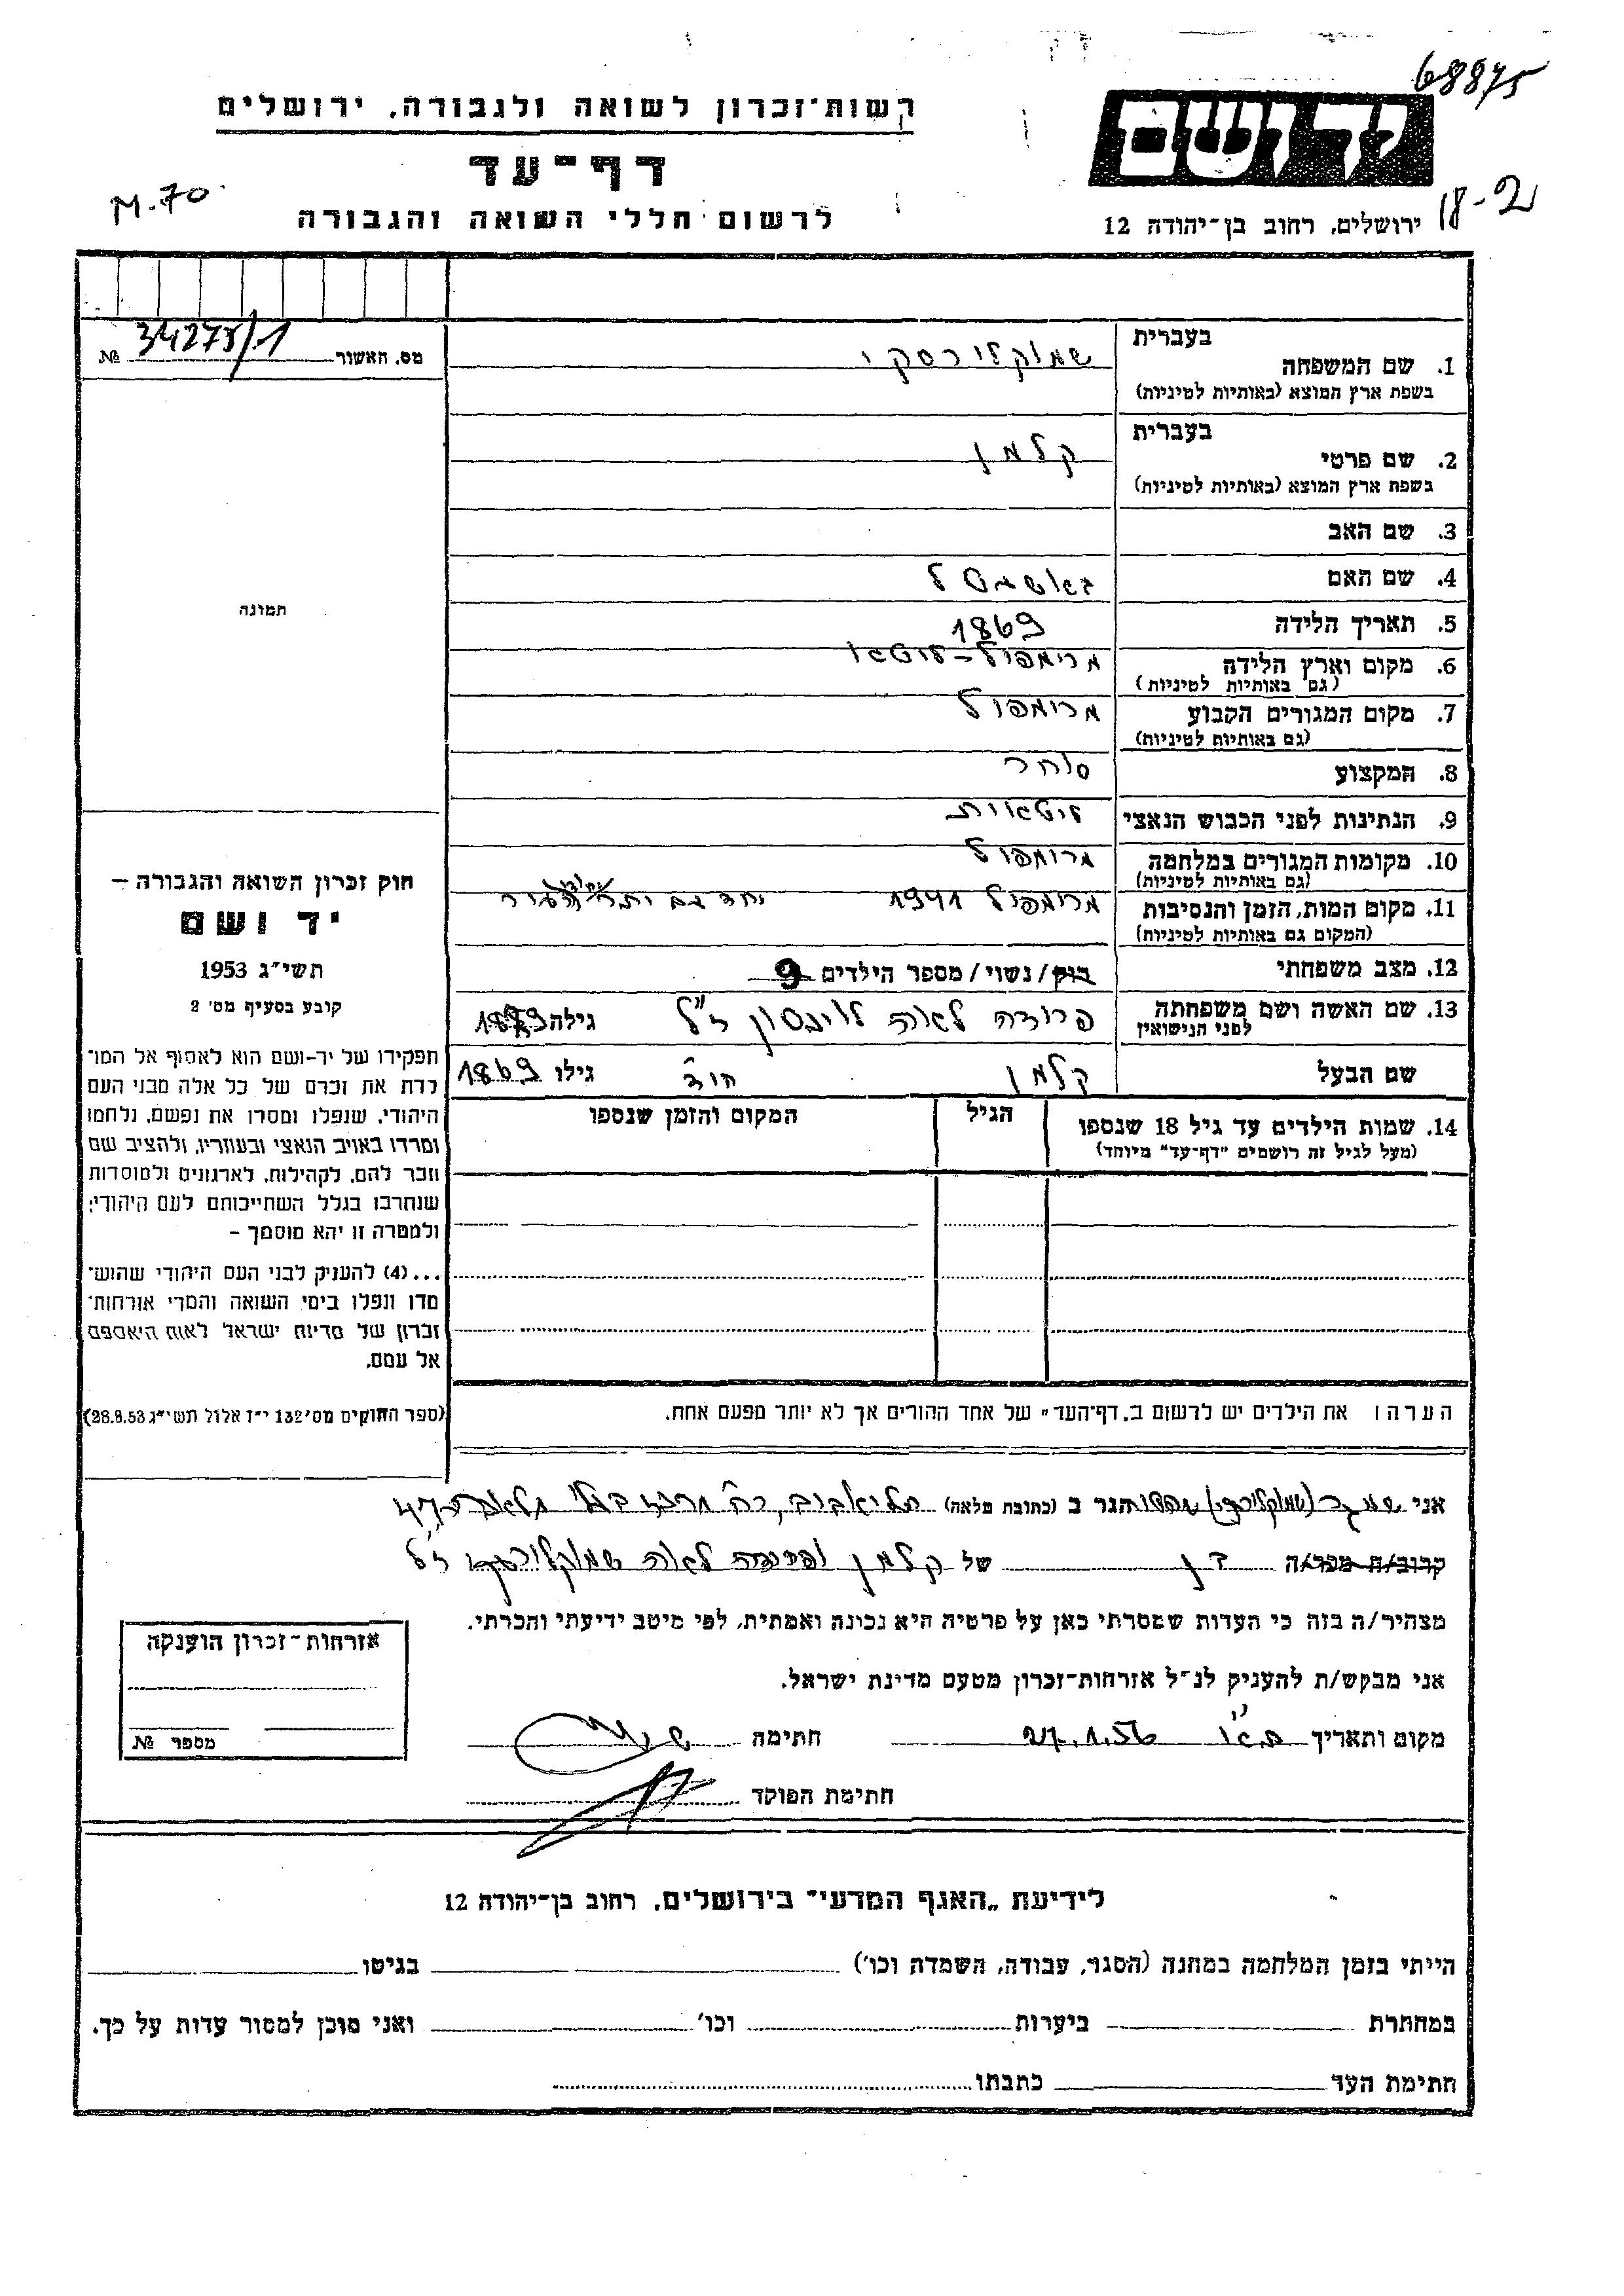 68875
רשות־זכרון לשואה ולגבורה, ירושלים
דף־עד
לרשום חללי השואה והגבורה
M-70
ידושם
ירושלים, רחוב בן־יהודה 12
18-2
מס. האשור 34275/1 №
תמונה
חוק זכרון השואה והגבורה –
יד ושם
תשי״ג 1953
קובע בסעיף מס׳ 2
תפקידו של יד-ושם הוא לאסוף אל המו־
לדת את זכרם של כל אלה מבני העם
היהודי, שנפלו ומסרו את נפשם, נלחמו
ומרדו באויב הנאצי ובעוזריו, ולהציב שם
וזכר להם, לקהילות, לארגונים ולמוסדות
שנחרבו בגלל השתייכותם לעם היהודי;
ולמטרה זו יהא מוסמך –
...(4) להעניק לבני העם היהודי שהוש־
מדו ונפלו בימי השואה והמרי אזרחות־
זכרון של מדינת ישראל לאות היאספם
אל עמם.
(ספר החוקים מס׳ 132 י״ז אלול תשי״ג 28.8.53)
בעברית
1. שם המשפחה שמוקלירסקי
בשפת ארץ המוצא (באותיות לטיניות)
בעברית
2. שם פרטי קלמן
בשפת ארץ המוצא (באותיות לטיניות)
3. שם האב
4. שם האם
5. תאריך הלידה 1869
6. מקום וארץ הלידה מרימפול – ליטא
(גם באותיות לטיניות)
7. מקום המגורים הקבוע מרימפול
(גם באותיות לטיניות)
8. המקצוע סוחר
9. הנתינות לפני הכבוש הנאצי ליטאית
10. מקומות המגורים במלחמה מרימפול
(גם באותיות לטיניות)
11. מקום המות, הזמן והנסיבות מרימפול 1941 יחד עם יתר העיר
(המקום גם באותיות לטיניות)
12. מצב משפחתי רווק/נשוי/מספר הילדים 9
13. שם האשה ושם משפחתה פרידה לאה לוינסון ז״ל גילה
לפני הנישואין
שם הבעל קלמן גילו 1869
14. שמות הילדים עד גיל 18 שנספו הגיל המקום והזמן שנספו
(מעל לגיל זה רושמים ״דף־עד״ מיוחד)
הערה: את הילדים יש לרשום ב„דף־העד״ של אחד ההורים אך לא יותר מפעם אחת.
אני (שמוקלירסקי) הגר ב (כתובת מלאה) תל־אביב,
קרוב/ה מכר/ה בן של קלמן ופרידה לאה שמוקלירסקי ז״ל
מצהיר/ה בזה כי העדות שמסרתי כאן על פרטיה היא נכונה ואמתית, לפי מיטב ידיעתי והכרתי.
אני מבקש/ת להעניק לנ״ל אזרחות־זכרון מטעם מדינת ישראל.
מקום ותאריך ת״א 27.1.56 חתימה
חתימת הפוקד
אזרחות־זכרון הוענקה
מספר №
לידיעת „האגף המדעי״ בירושלים, רחוב בן־יהודה 12
הייתי בזמן המלחמה במחנה (הסגר, עבודה, השמדה וכו׳) בגיטו
במחתרת ביערות וכו׳ ואני מוכן למסור עדות על כך.
חתימת העד כתבתו